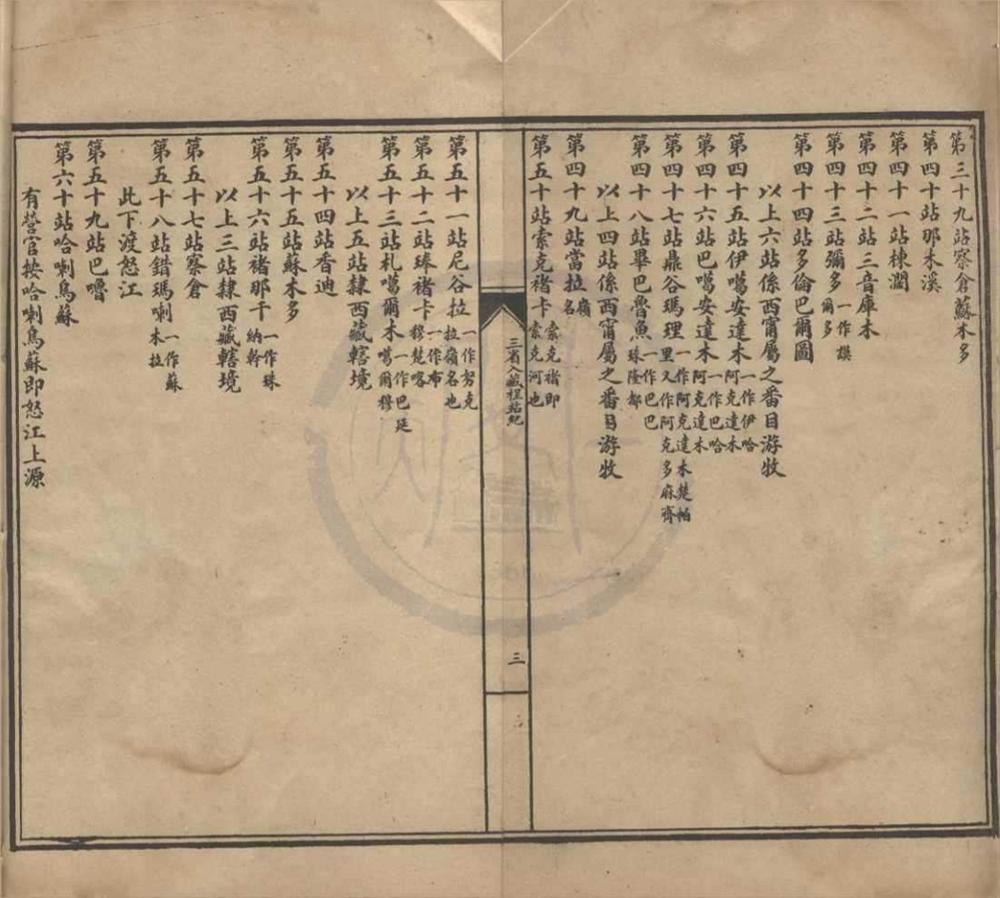 第三十九站察倉蘇木多
第四十站那木溪
第四十一站棟濶
第四十二站三音庫本
第四十三站彌多一作謨爾多
第四十四站多倫巴爾圖
以上六站係西甯屬之番目游牧
第四十五站伊噶安達木一作伊哈阿克達木
第四十六站巴噶安達木一作巴哈阿克達木
第四十七站鼎谷瑪理一作阿克達木楚帕里又作阿克多麻齊
第四十八站畢巴魯魚一作巴巴珠隆都
以上四站係西甯屬之番目游牧
第四十九站當拉嶺名
第五十站索克褚卡索克褚即索克河也
三省入藏程站紀
三
第五十一站尼谷拉一作努克拉嶺名也
第五十二站琫褚卡一作布穆楚喀
第五十三站札噶爾木一作巴延噶爾穆
以上五站隸西藏轄境
第五十四站香迪
第五十五站蘇木多
第五十六站褚那千一作珠納幹
以上三站隸西藏轄境
第五十七站察倉
第五十八站錯瑪喇一作蘇木拉
此下渡怒江
第五十九站巴嚕
第六十站哈喇烏蘇
有營官按哈喇烏蘇即怒江上源